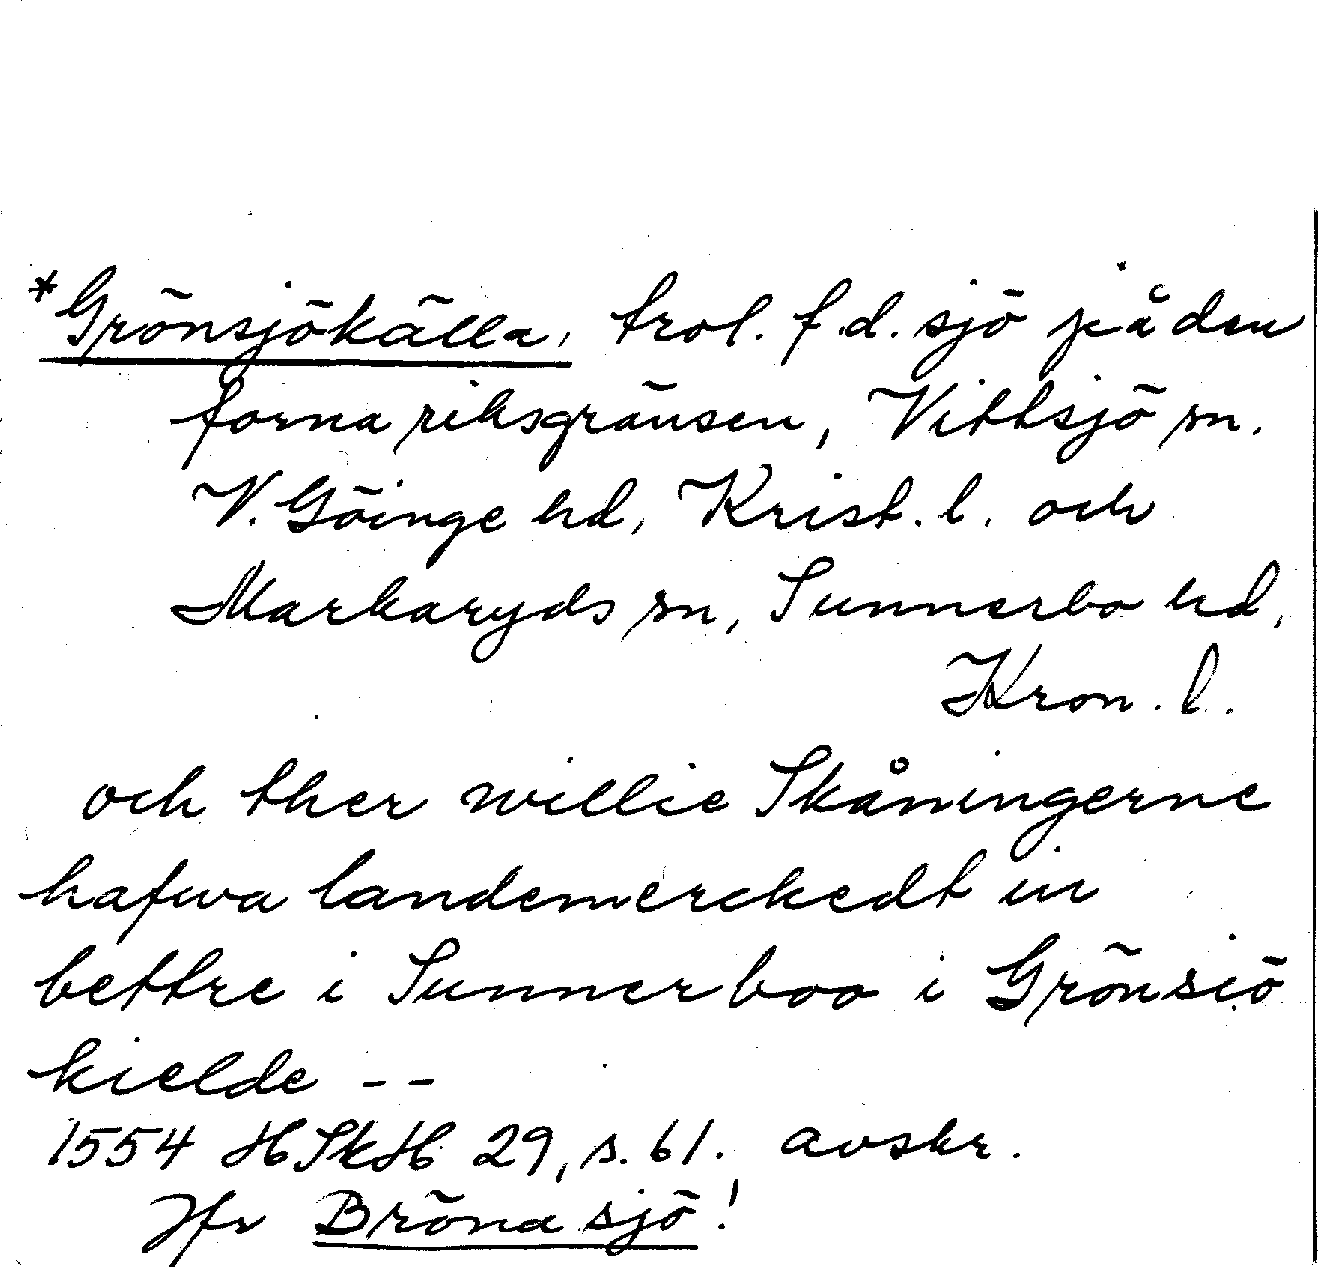 *Grönsjökälla, trol. f.d. sjö på den
forna riksgränsen, Vittsjö sn.
V. Göinge hd, Krist. l. och
Markaryds sn, Sunnerbo hd,
Kron. l.
och ther willie Skåningerne
hafwa landemerckedt in
bettre i Sunnerboo i Grönsiö
kielde --
1554 HSkH 29, s. 61. avskr.
Jfr Bröna sjö!